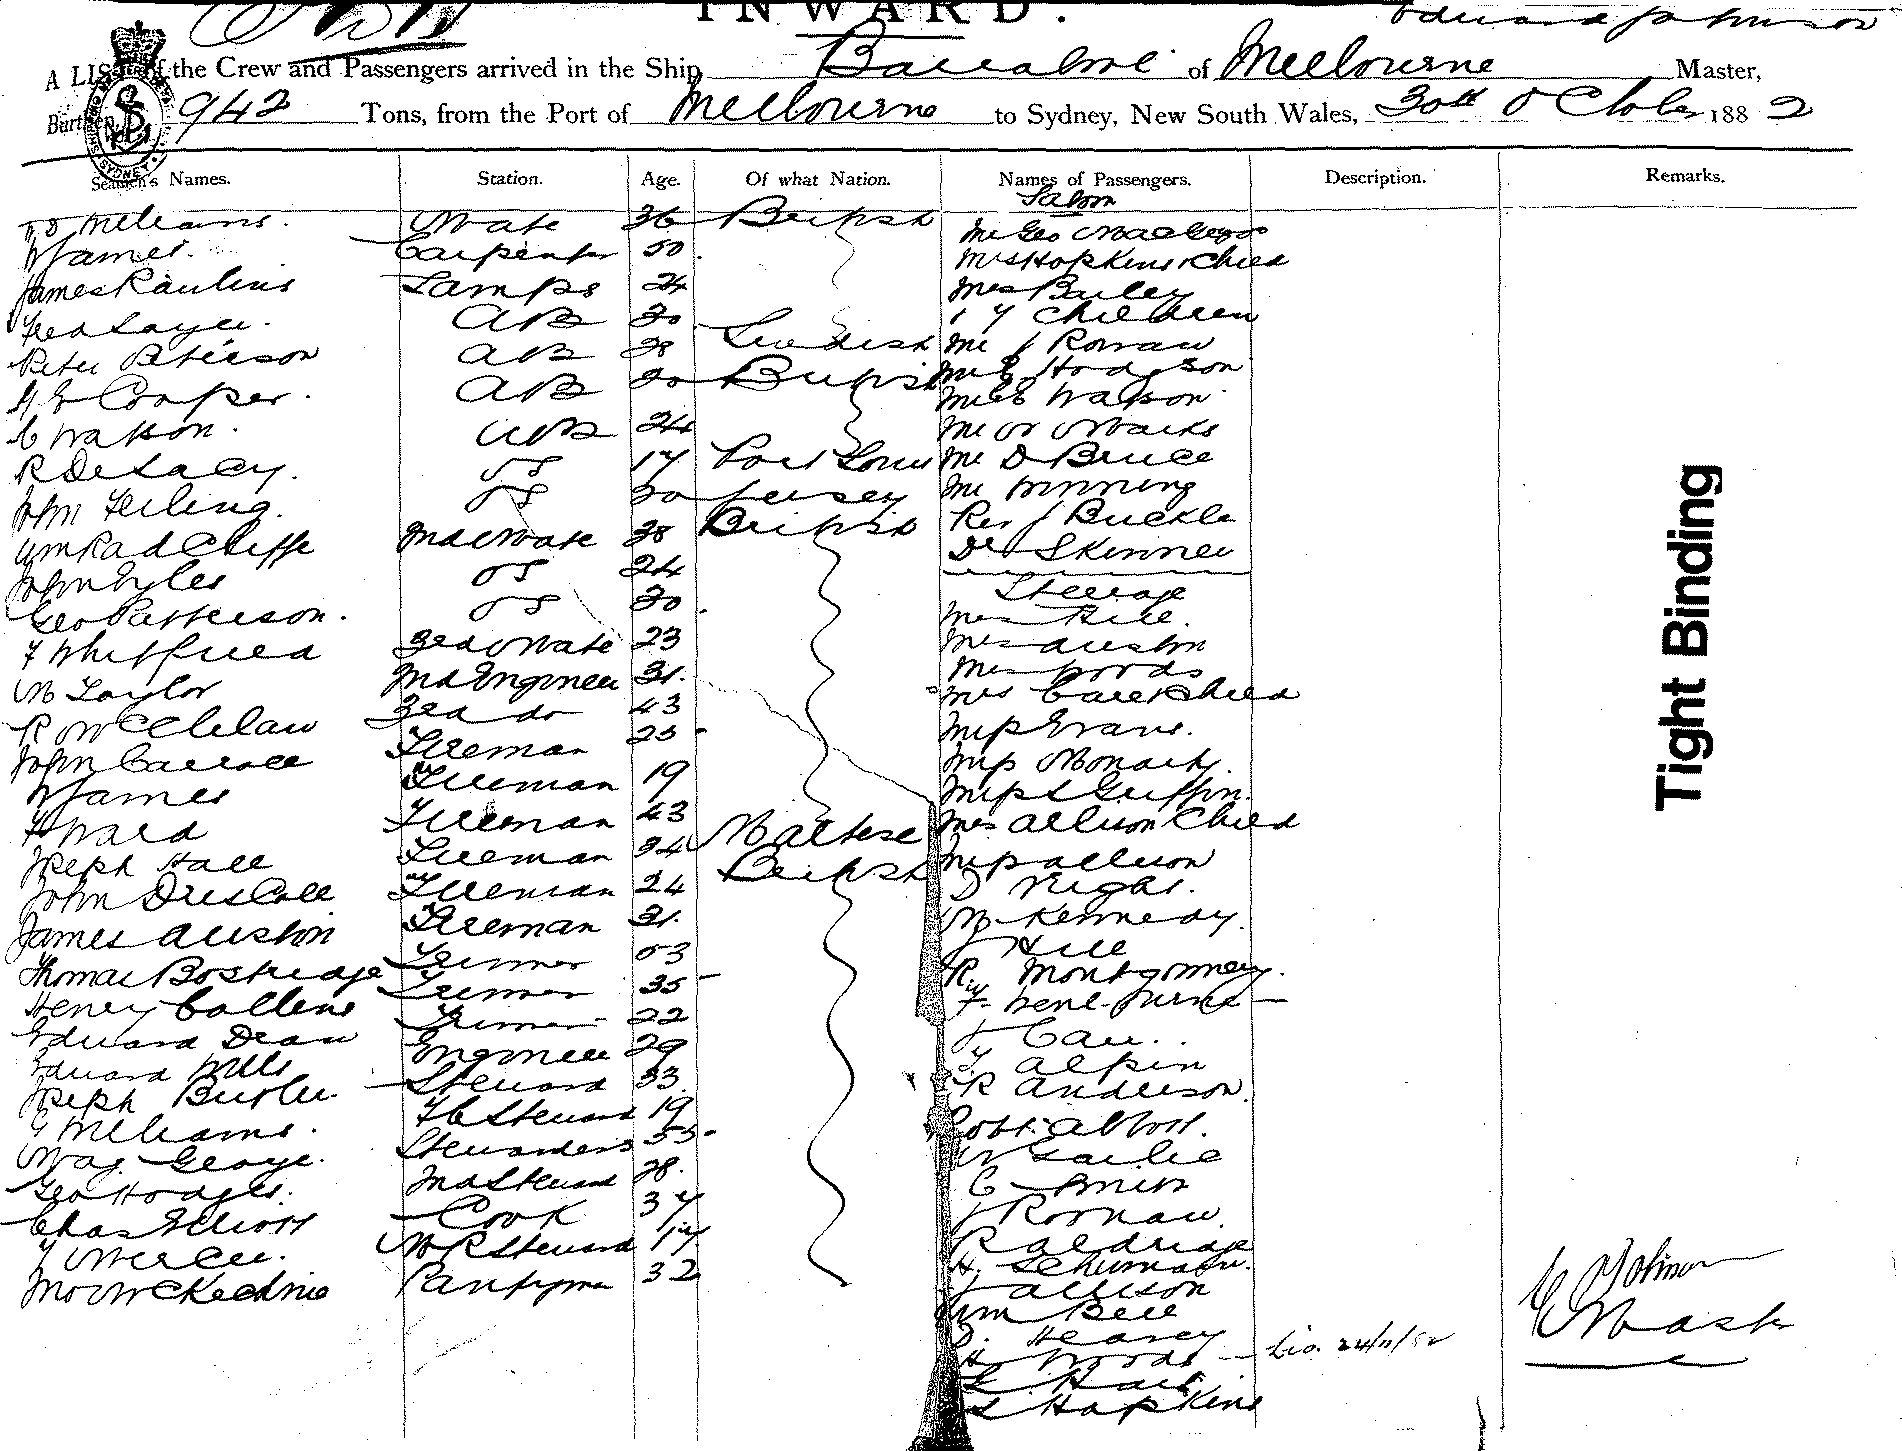 INWARD.
A LIST of the Crew and Passengers arrived in the Ship Barrabool of Melbourne Edward Johnson Master,
Burthen 942 Tons, from the Port of Melbourne to Sydney, New South Wales, 30th October 1882
Seamen's Names. Station. Age. Of what Nation. Names of Passengers. Description. Remarks.
Saloon
Williams. Mate 36 British
W James. Carpenter 50
James Rawlins Lamps 24
Fred Sayer. AB 30
Peter Peterson AB 28 Swedish
Cooper. AB 30 British
C Watson. AB 24
R De Lacy. OS 17 Port Louis
John Feiling. OS 20 Jersey
Wm Radcliffe 2nd Mate 38 British
John Syles OS 24
Geo Patterson. OS 30
F Whitfield 3rd Mate 23
M Taylor 2nd Engineer 31.
R McClelan 3rd do 43
John Carroll Fireman 25
W James Fireman 19
H Ward Fireman 43
Joseph Hall Fireman 34 Maltese
John Driscoll Fireman 24 British
James Austin Fireman 31.
Thomas Bostridge Trimmer 53
Henry Collins Trimmer 35
Edward Dean Trimmer 22
Edward Wills Engineer 29
Joseph Butler Steward 33
G Williams. F C Steward 19
Mag. George. Stewardess 55
Geo Hodges. 2nd Steward 28.
Chas Elliott Cook 37
Mercer. M R Steward 17
McKechnie Pantryman 32
Mr Geo
Mrs Hopkins & Child
Mrs Bailey
& 7 Children
Mr J Rowan
Mr E Hodgson
Miss Watson
Mr Marks
Mr D Bruce
Mr Winning
Rev J Buckle
Dr Skinner
Steerage
Mrs Bell.
Mrs Austin
Mrs Woods
Mrs Carr & Child
Miss Evans.
Miss Monarty.
Miss L Griffin.
Mrs Allison Child
Miss Allison
D Night.
M Kennedy.
J Hill
R Montgomery.
F
J Carr..
T Alpin
R Anderson.
Robt. Abbott.
W Bailie
C Smith
J Roonaw.
R Aldridge
H. Schumann.
J Allison
Wm Bell
D. Heavey
H Woods
Hart
L Hopkins
C Johnson
Tight Binding